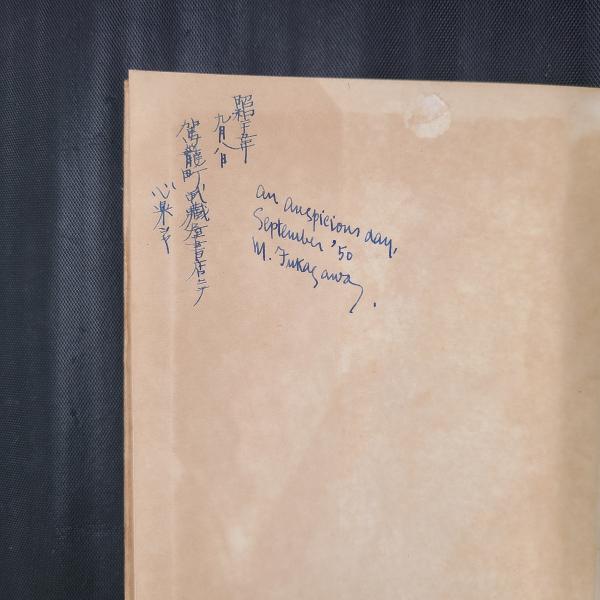 昭和五年
九月八日
駕籠町武蔵屋書店ニテ
an auspicious day,
September '50
M. Fukagawa.